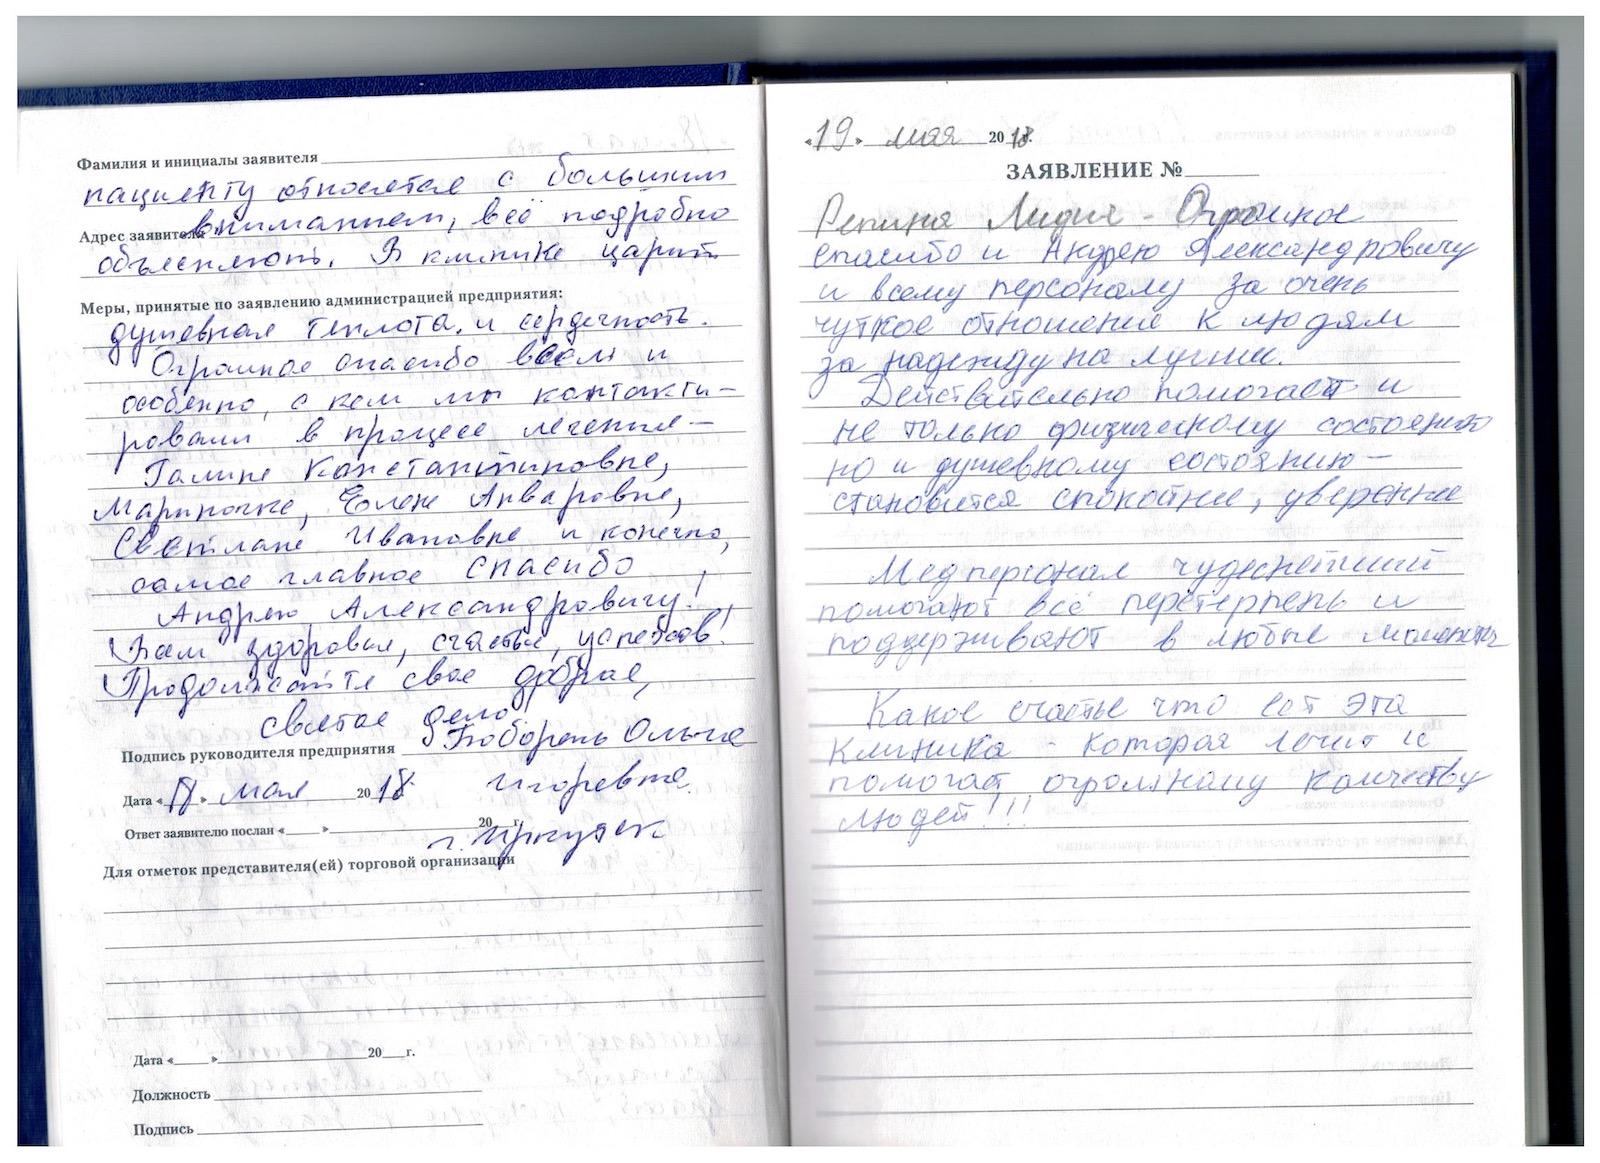 Фамилия и инициалы заявителя
пациенту относятся с большим
Адрес заявителя
вниманием, всё подробно
объясняют. В клинике царит
Меры, принятые по заявлению администрацией предприятия:
душевная теплота и сердечность.
Огромное спасибо всем и
особенно, с кем мы контакти-
ровали в процессе лечения-
Галине Константиновне,
Мариночке, Елене Анваровне,
Светлане Ивановне и конечно,
самое главное спасибо
Андрею Александровичу!
Вам здоровья, счастья, успехов!
Продолжайте свое доброе,
святое дело
Подпись руководителя предприятия
Ольга
Дата « » мая 2018 Игоревна.
Ответ заявителю послан « » 20 г.
г. Иркутск
Для отметок представителя(ей) торговой организации
Дата « » 20 г.
Должность
Подпись
«19» мая 2018г.
ЗАЯВЛЕНИЕ №
Репина Лидия - Огромное
спасибо и Андрею Александровичу
и всему персоналу за очень
чуткое отношение к людям
за надежду на лучшее.
Действительно помогает и
не только физическому состоянию
но и душевному состоянию-
становится спокойнее, увереннее
Медперсонал чудеснейший
помогают всё перетерпеть и
поддерживают в любые моменты
Какое счастье что ест эта
клиника - которая лечит и
помогает огромному количеству
людей!!!